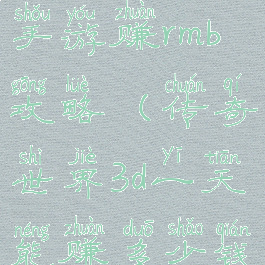 shǒu yóu zhuàn
手游赚rmb
gōng lüè chuán qí
攻略（传奇
shì jiè yī tiān
世界3d一天
néng zhuàn duō shǎo qián
能赚多少钱